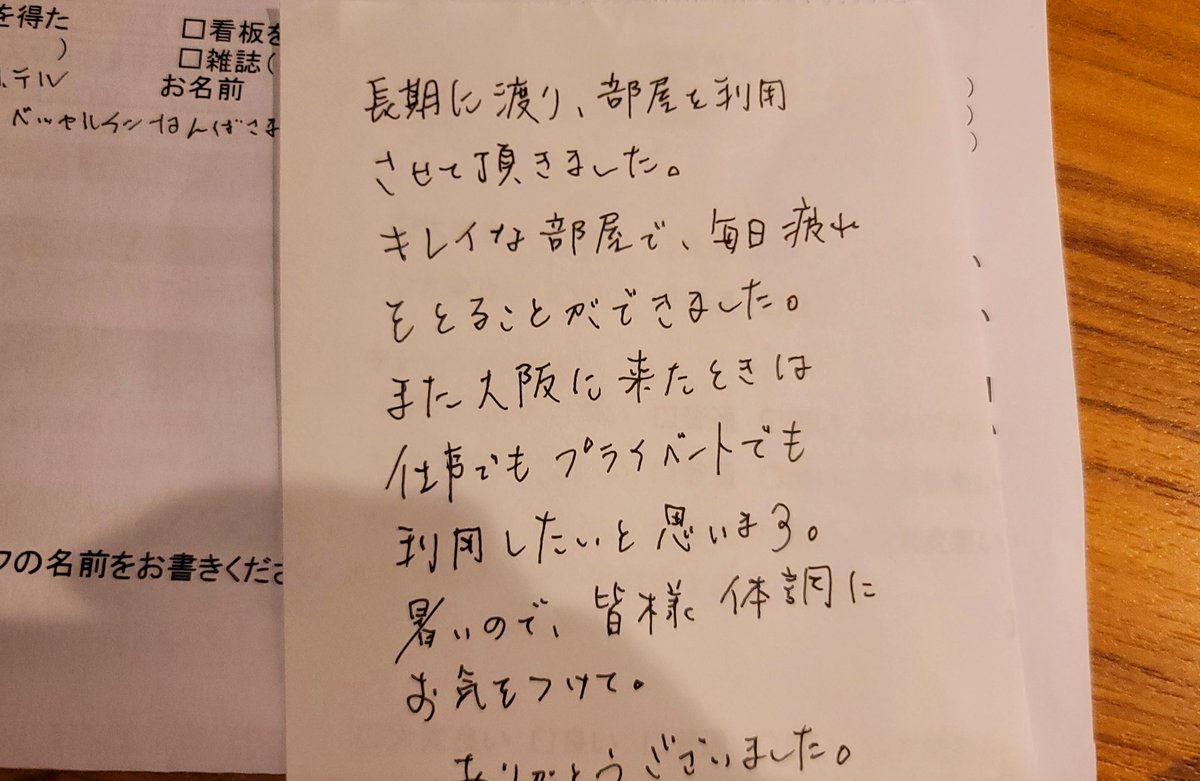 を得た
□看板を
)
□雑誌(
テル
お名前
ベッセルインなんばさま
長期に渡り、部屋を利用
させて頂きました。
キレイな部屋で、毎日疲れ
をとることができました。
また大阪に来たときは
仕事でもプライベートでも
利用したいと思います。
暑いので、皆様 体調に
お気をつけて。
ありがとうございました。
フの名前をお書きくださ
)
)
)